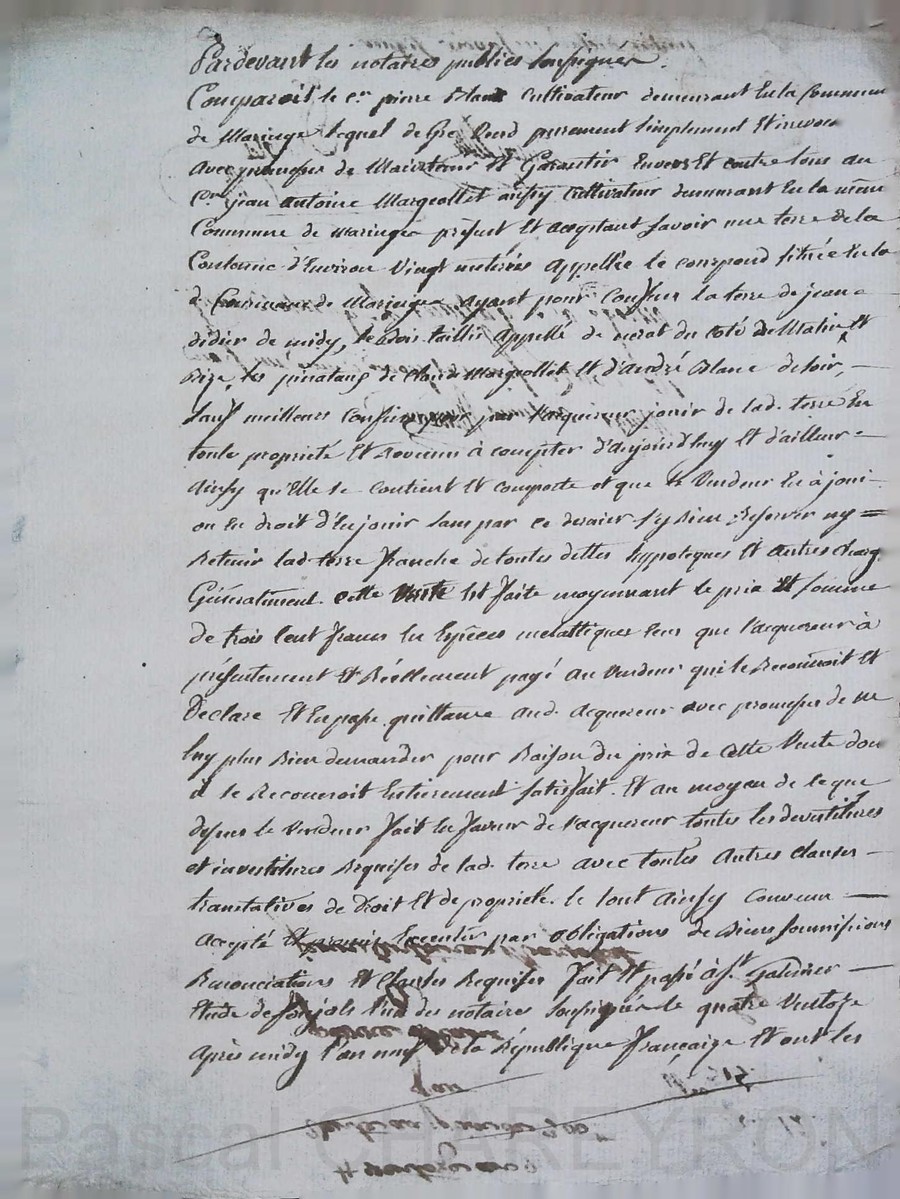 Pardevant les notaires publics soussignes.
Comparoit le cen pierre Blanc Cultivateur demeurant En la Commune
de Maringe lequel de Gré Vend purement simplement Et irrevoc
avec promesse de Maintenir Et Garantir Envers Et contre tous au
Cen jean antoine Margeollet aussy Cultivateur demeurant En la même
Commune de Maringe présent Et acceptant savoir une terre de la
Contenue d'Environ Vingt métérés Appellée le situé En la
d. Commune de Maringe ayant pour Confins la terre de jean =
didier de midy, le bois taillis appellé de du coté de Matin Et
Bize, les de Claude Margeollet Et d'André Blanc de soir, —
sauf meilleurs Confins pour par l'acquereur jouir de lad. terre En
toute proprieté Et à compter d'aujourd'huy Et d'ailleur =
Ainsy qu'Elle se Contient Et comporte et que le Vendeur En à joui
ou Eu droit d'En jouir sans par ce dernier s'y Rien Reserver ny =
Retenir lad. terre franche de toutes dettes hypoteques Et autres charg
Généralement. cette Vente Est faite moyennant le prix Et somme
de trois Cent francs En Espèces metalliques que l'acquereur à
présentement Et Réellement payé au Vendeur qui le Reconnoit Et
Déclare Et En passe quittance aud. Acquereur avec promesse de ne
luy plus Rien demander pour Raison du prix de Cette Vente don
il se Reconnoit Entierement satisfait. Et au moyen de le que
dessus le Vendeur fait En faveur de l'acquereur toutes les devestitures
et investitures Requises de lad. terre avec toutes Autres Clauses —
translatives de Droit Et de proprieté. le tout Ainsy Convenu —
Accepté Et promis Executer par obligations de Biens soumissions
Renonciations Et Clauses Requises fait Et passé à St. Galmier —
Etude de l'un des notaires soussignés le quatre Ventose
Après midy l'an neuf de la République française Et ont les